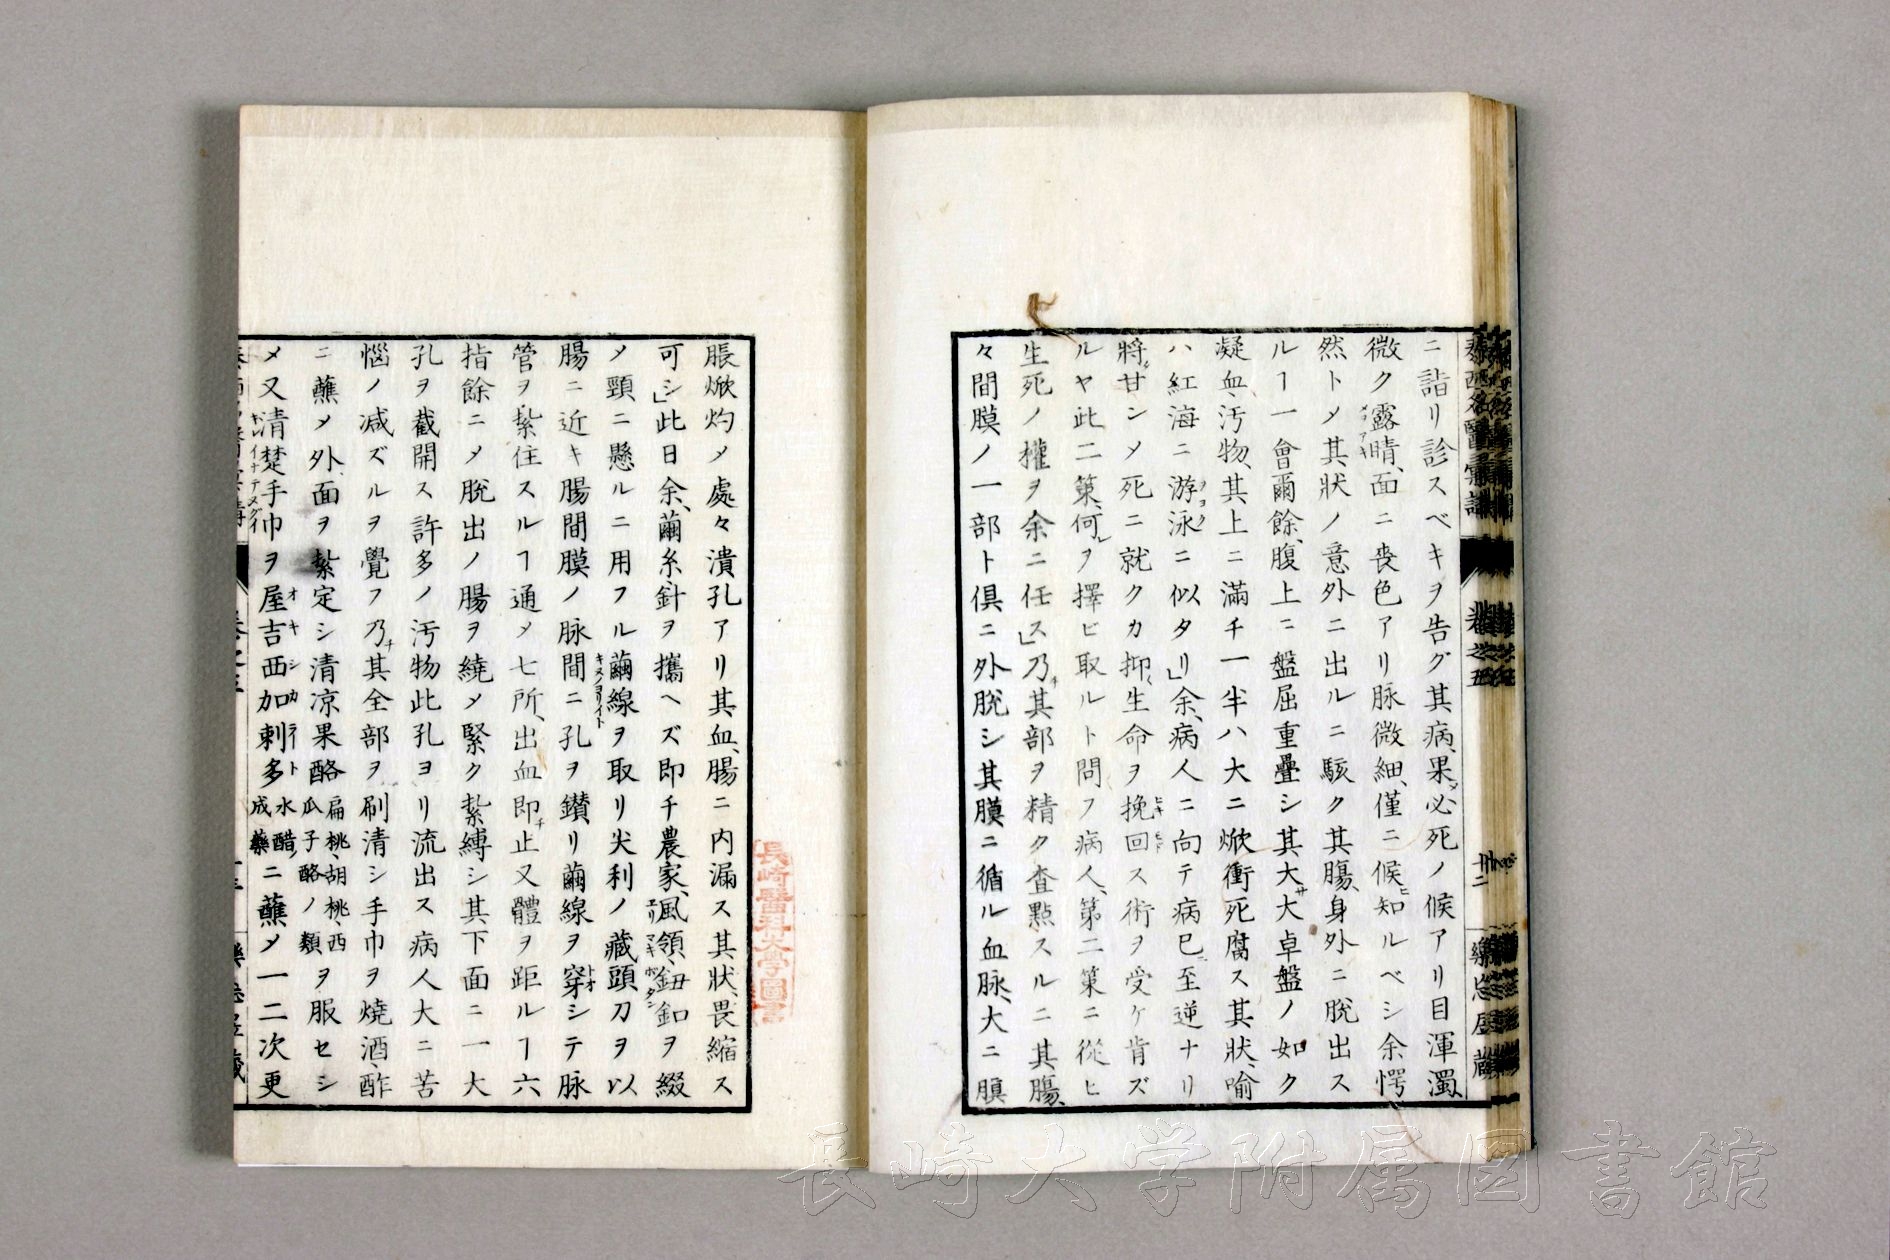 ニ詣リ診スベキヲ告グ其病、果〆必死ノ候アリ目渾濁、
微ク露晴、面ニ喪色アリ脉微細、僅ニ候ヒ知ルベシ余愕
然トメ其状ノ意外ニ出ルニ駭ク其膓、身外ニ脱出ス
ルヿ一會爾餘、腹上ニ盤屈重疊シ其大サ大卓盤ノ如ク
凝血、汚物、其上ニ滿チ一半ハ大ニ焮衝死腐ス其状、喻
ハ紅海ニ游泳ニ似タリ」余、病人ニ向テ病已ニ至逆ナリ
將タ甘ンメ死ニ就クカ抑〻生命ヲ挽回ス術ヲ受ケ肯ズ
ルヤ此二策、何レヲ擇ビ取ルト問フ病人、第二策ニ從ヒ
生死ノ權ヲ余ニ任ス」乃チ其部ヲ精ク査點スルニ其膓、
々間膜ノ一部ト俱ニ外脱シ其膜ニ循ル血脉、大ニ䐜
脹焮灼メ處々潰孔アリ其血、腸ニ内漏ス其状、畏縮ス
可シ」此日余、繭糸針ヲ攜ヘズ即チ農家、風領、鈕釦ヲ綴
メ頸ニ懸ルニ用フル繭線ヲ取リ尖利ノ藏頭刀ヲ以
腸ニ近キ腸間膜ノ脉間ニ孔ヲ鑚リ繭線ヲ穿シテ脉
管ヲ紮住スルヿ通メ七所、出血即チ止又體ヲ距ルヿ六
指餘ニメ脱出ノ腸ヲ繞メ緊ク紮縛シ其下面ニ一大
孔ヲ截開ス許多ノ汚物此孔ヨリ流出ス病人大ニ苦
惱ノ减ズルヲ覺フ乃チ其全部ヲ刷清シ手巾ヲ燒酒、酢
ニ蘸メ外、面ヲ紮定シ清凉果酪扁桃、胡桃、西瓜子酪ノ類ヲ服セシ
メ又清楚手巾ヲ屋吉西加剌多水醋ノ成藥ニ蘸メ一二次更
泰西名醫彙講
卷之五
十二
樂忩居藏
長崎醫科大學圖書
長崎大学附属図書館